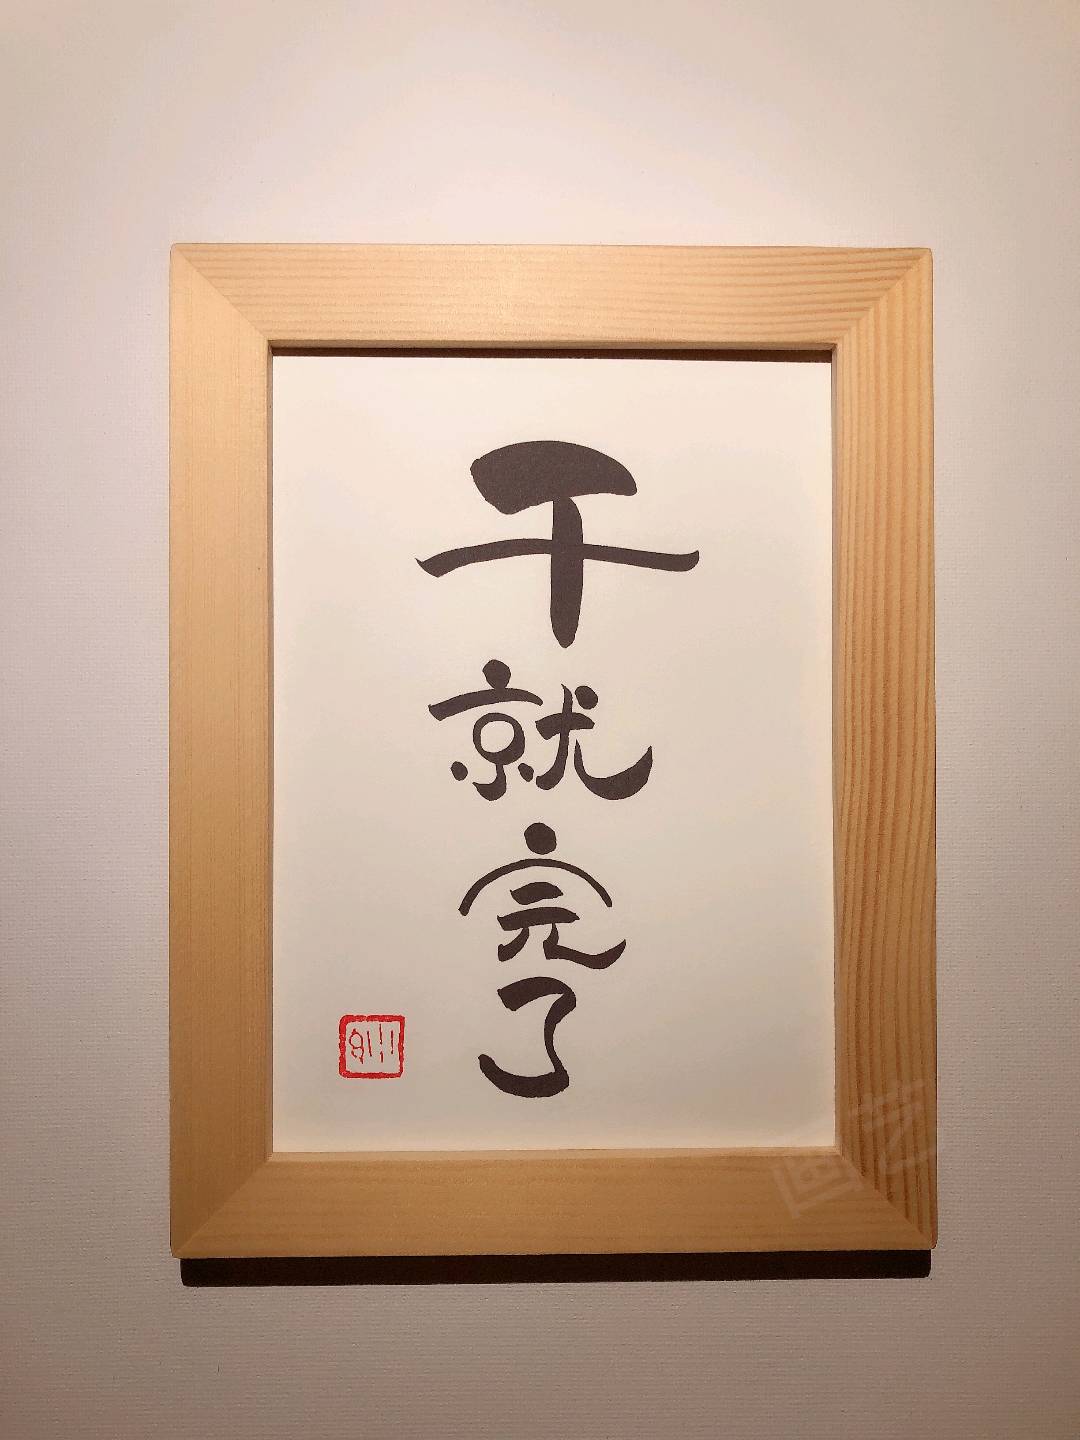 干就完了
画芝